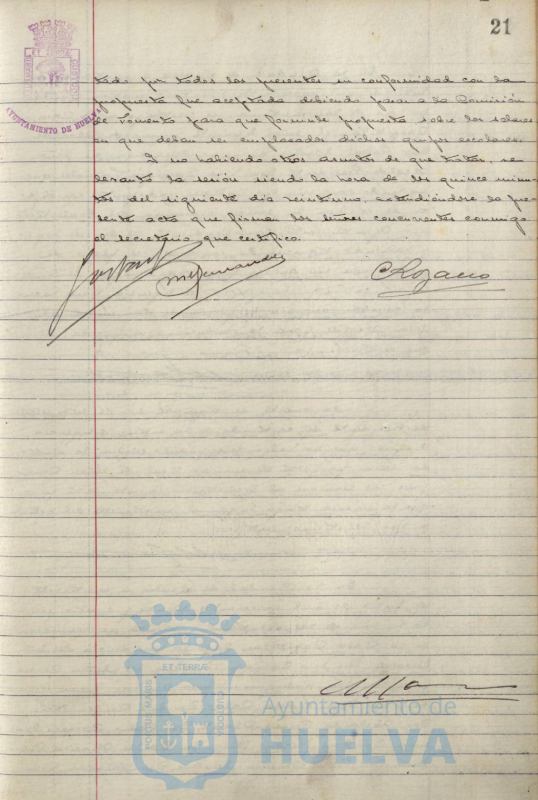 21
AYUNTAMIENTO DE HUELVA
tado por todos los presentes su conformidad con la
propuesta fue aceptada debiendo pasar a la Comisión
de Fomento para que formule propuesta sobre los solares
en que deban ser emplazados dichos grupos escolares.
Y no habiendo otros asuntos de que tratar, se
levantó la sesión siendo la hora de las quince minu-
tos del siguiente día veintiuno, extendiéndose la pre-
sente acta que firman los señores concurrentes conmigo
el secretario que certifico.
CRozano
ET TERRÆ
PORTUS MARIS
CUSTODIA
Ayuntamiento de
HUELVA